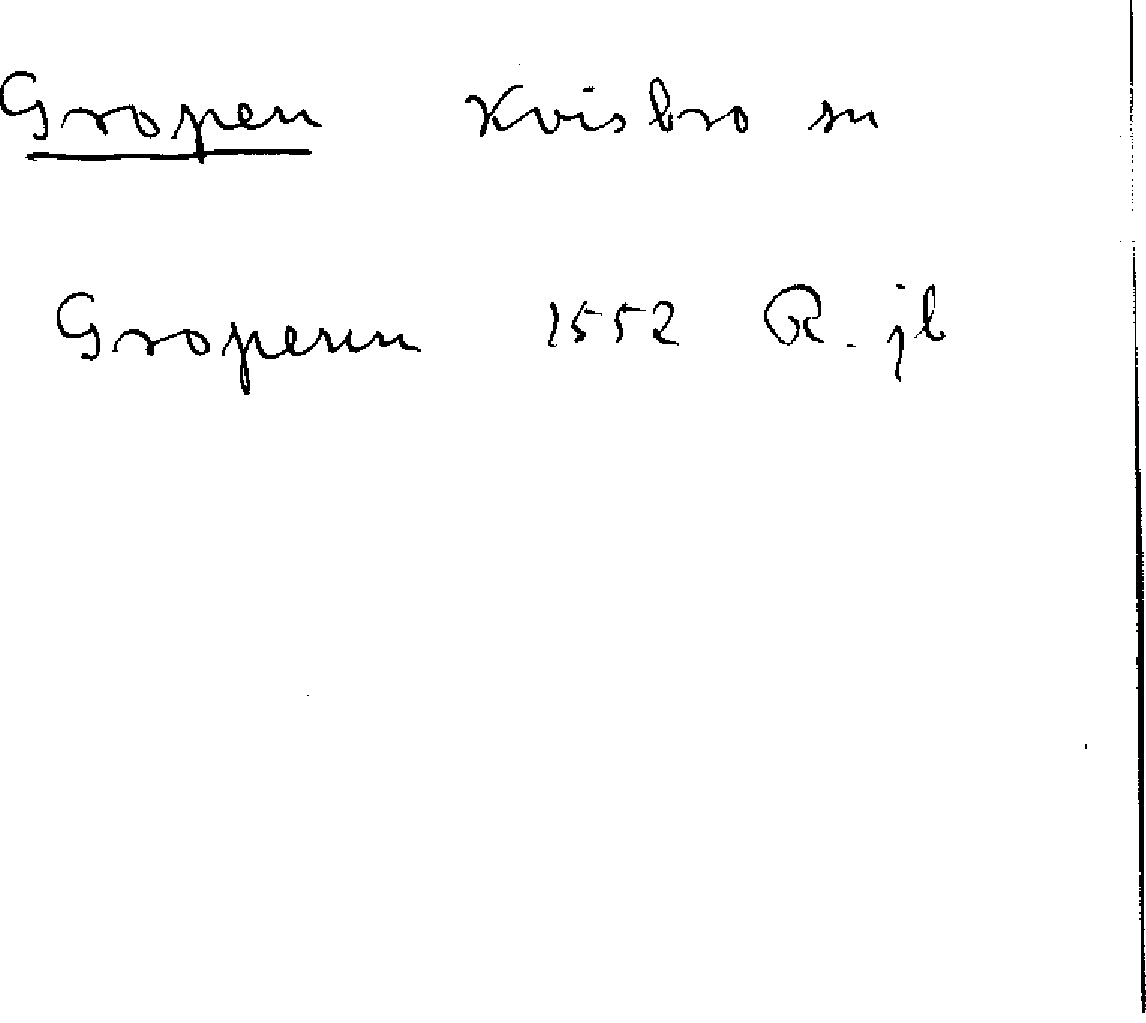 Gropen Kvisbro sn
Gropenn 1552 R. jb